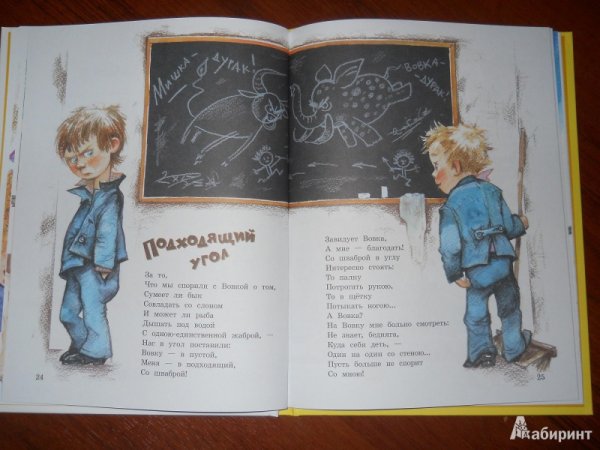 Мишка-
дурак!
Вовка-
дурак!
Подходящий
угол
За то,
Что мы спорили с Вовкой о том,
Сумеет ли бык
Совладать со слоном
И может ли рыба
Дышать под водой
С одною-единственной жаброй, —
Нас в угол поставили:
Вовку — в пустой,
Меня — в подходящий,
Со шваброй!
24
Завидует Вовка,
А мне — благодать!
Со шваброй в углу
Интересно стоять:
То палку
Потрогать рукою,
То в щётку
Потыкать ногою...
А Вовка?
На Вовку мне больно смотреть:
Не знает, бедняга,
Куда себя деть, —
Один на один со стеною...
Пусть больше не спорит
Со мною!
25
Лабиринт